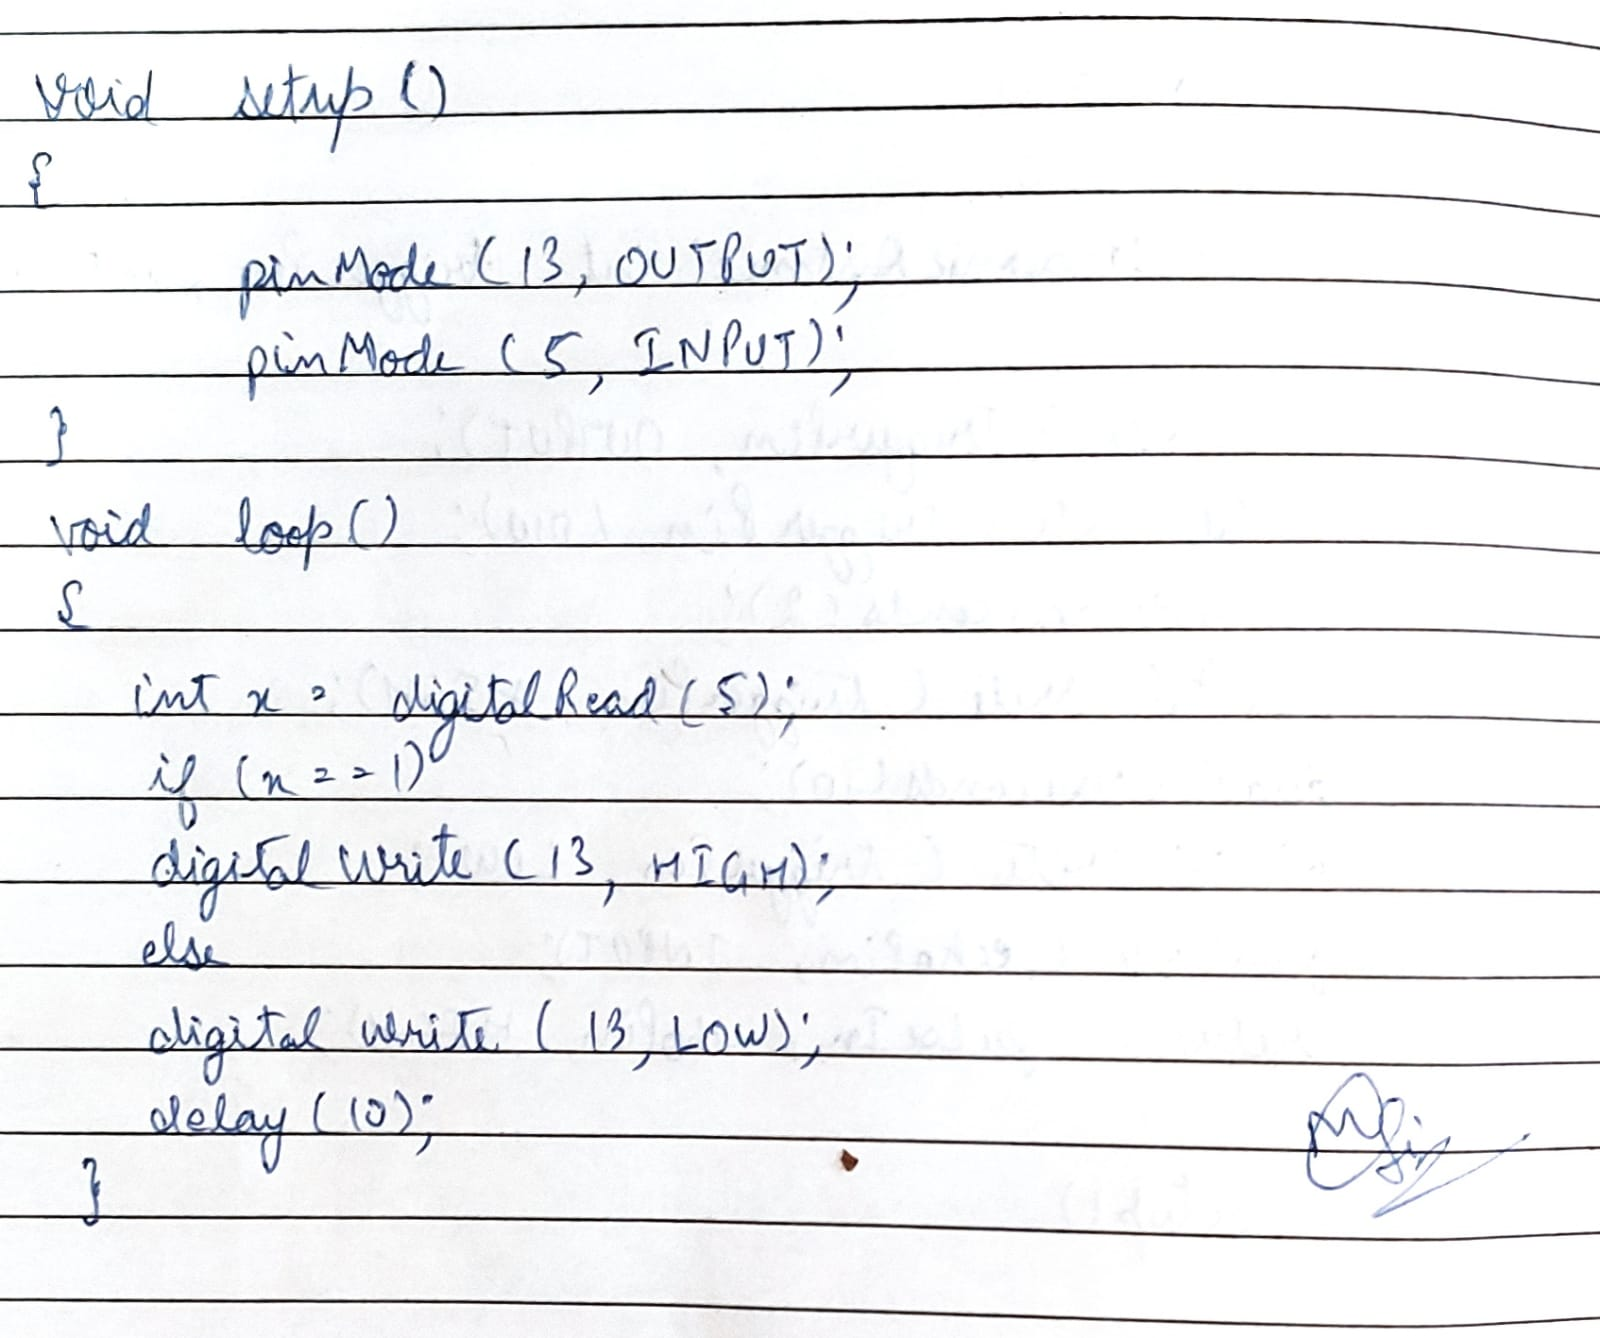 void setup()
{
pinMode (13, OUTPUT);
pinMode (5, INPUT);
}
void loop()
{
int x = digitalRead (5);
if (x == 1)
digital Write (13, HIGH);
else
digital write (13, LOW);
delay (10);
}